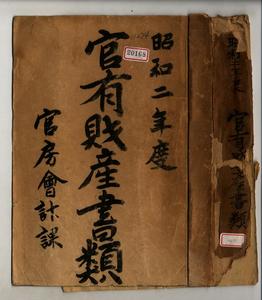 昭和二年度
20168
官有財産書類
官房會計課
官有財産書類